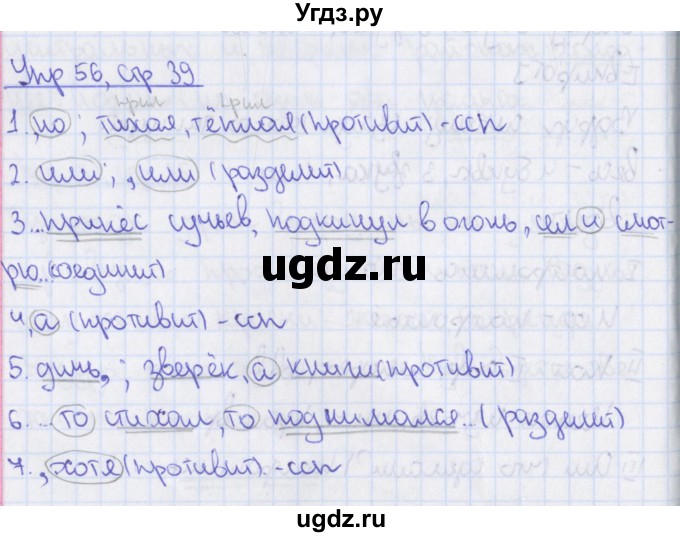 Угдз.ру
Упр 56, стр 39
1. ,но ; тихая, тёплая (противит) - ссп
прил прил
2. или ; , или (разделит)
3... принёс сучьев, подкинул в огонь, сел и смот-
рю..(соединит)
4, а (противит) - ссп
5. дичь, ; зверёк, а книги (противит)
6. ... то стихал, то поднимался.. (разделит)
7. , хотя (противит). - ссп
ugdz.ru
ugdz.ru
ugdz.ru